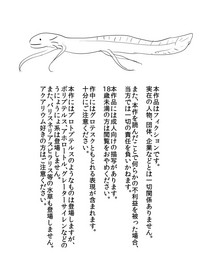 本作品はフィクションです。
実在の人物、団体、企業などとは一切関係ありません。
また、本作を読んだことで何らかの不利益を被った場合、
当方では一切の責任を負いかねます。
本作品には成人向けの描写があります。
18歳未満の方は閲覧をおやめください。
作中にはグロテスクともとれる表現が含まれます。
十分にご注意ください。
本作にはプロトプテルスのようなものは登場しますが、
ポリプテルス、アホロートル、グレーターサイレンなどの
うにょうにょ系は登場しません。
また、バリスネリア・スピラリス等の水草も登場しません。
アクアリウム好きの方はご注意ください。